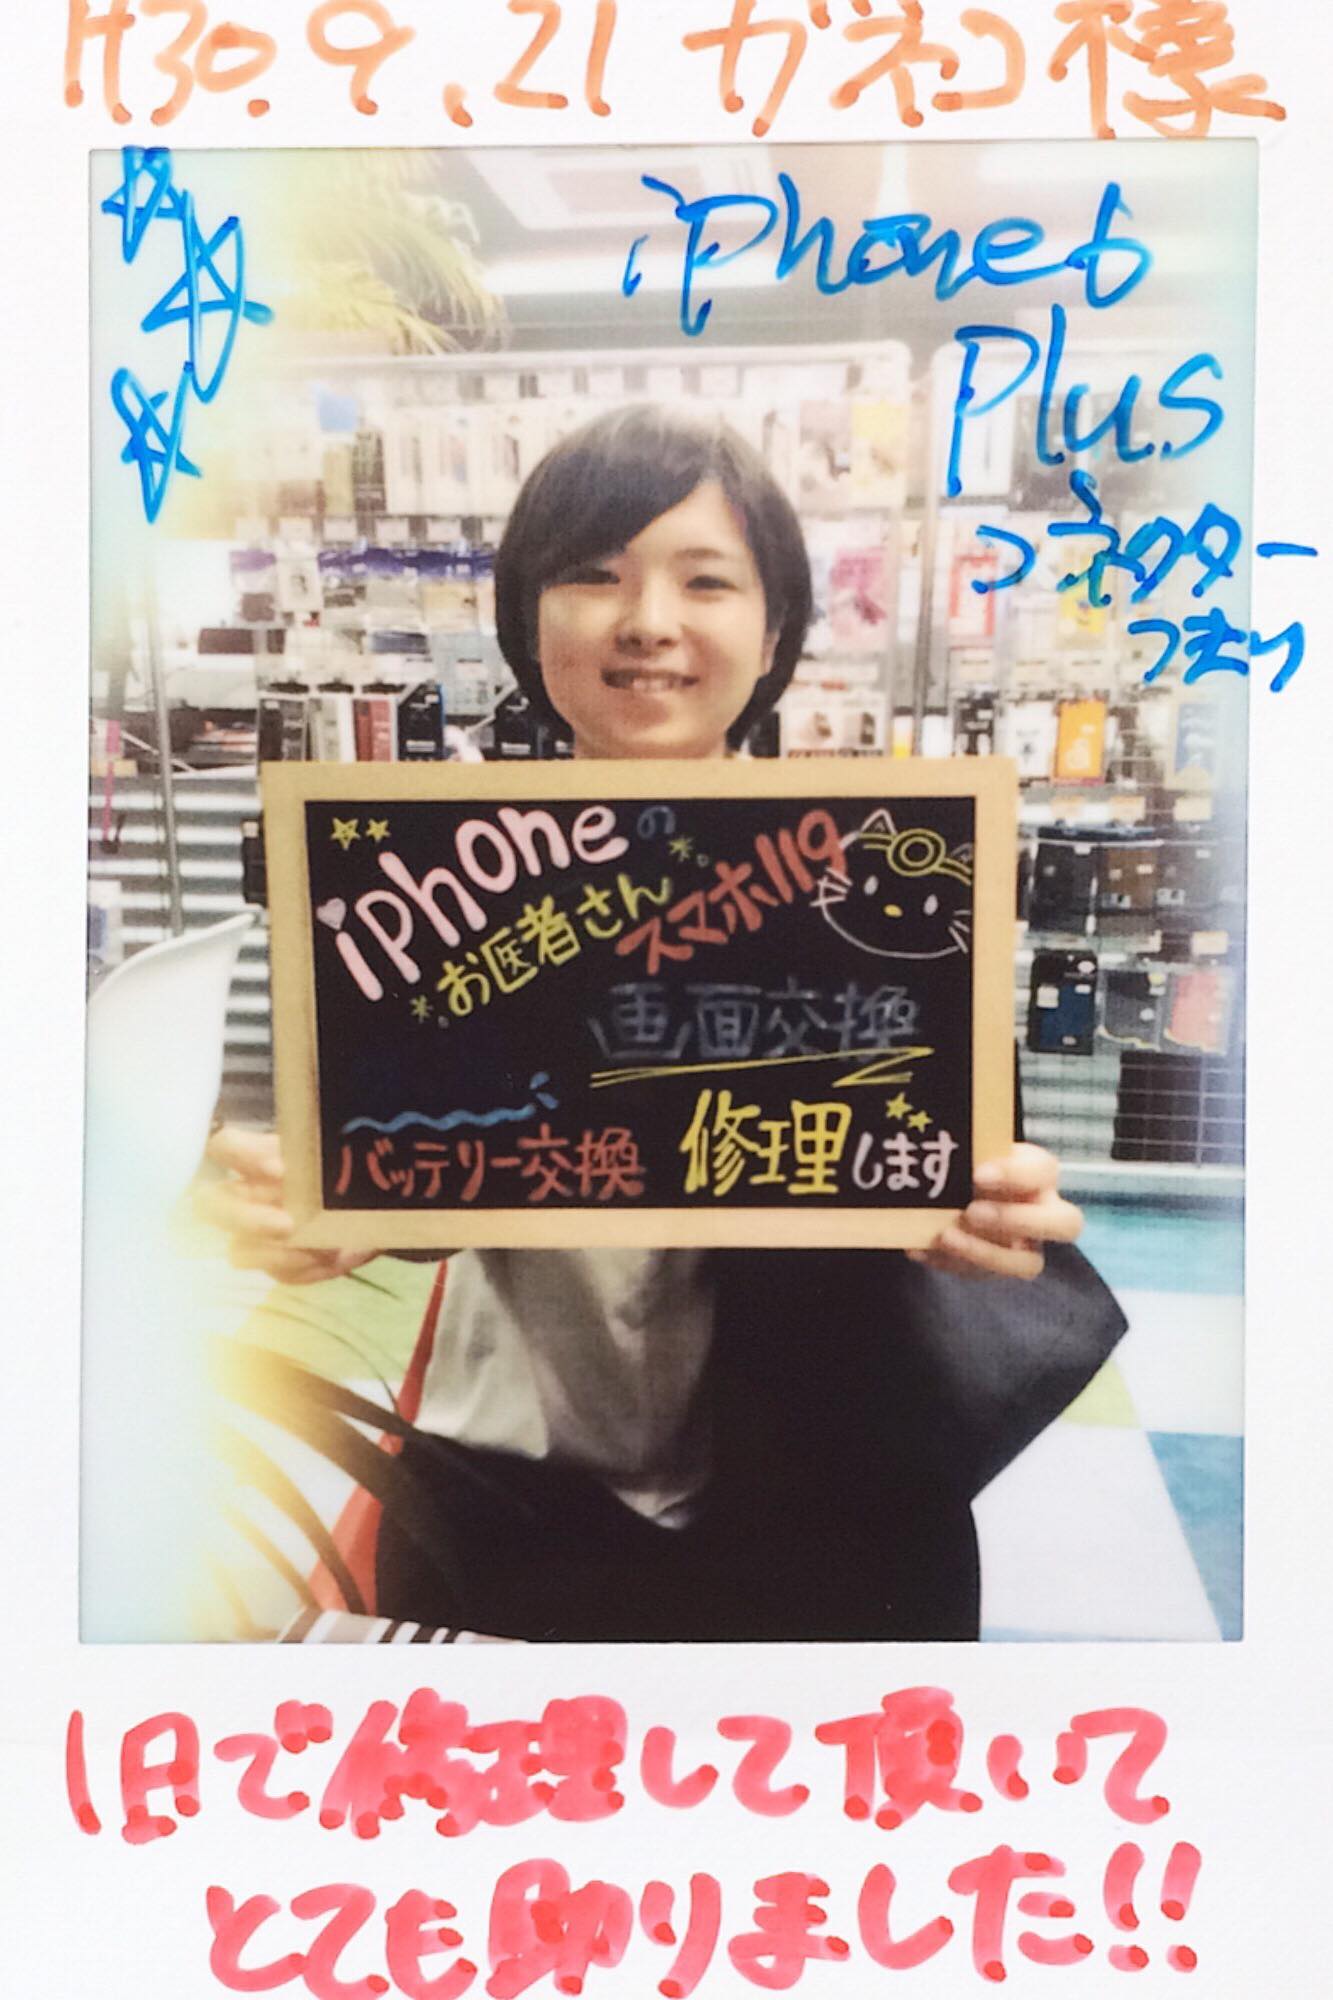 H30.9.21 ガネコ様
iPhone6
Plus
コネクター
iPhoneの
お医者さん
スマホ119
画面交換
バッテリー交換 修理します
1日で修理して頂いて
とても助りました!!